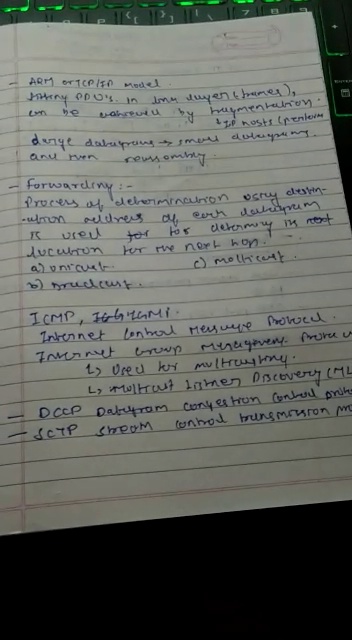 - ARM or TCP/IP model.
PDU's in link layer (frames),
can be achieved by fragmentation.
IP hosts (perform
large datagrams → small datagrams
and then reassembly.
- Forwarding :-
Process of determination using destin-
-ation address of each datagram
is used for to determine its next
location for the next hop.
a) unicast c) multicast.
b) broadcast.
ICMP, IGMP.
Internet Control Message Protocol.
Internet Group Management
↳ Used for multicasting.
↳ multicast listner Discovery (ML
- DCCP Datagram congestion control proto
- SCTP stream control transmission